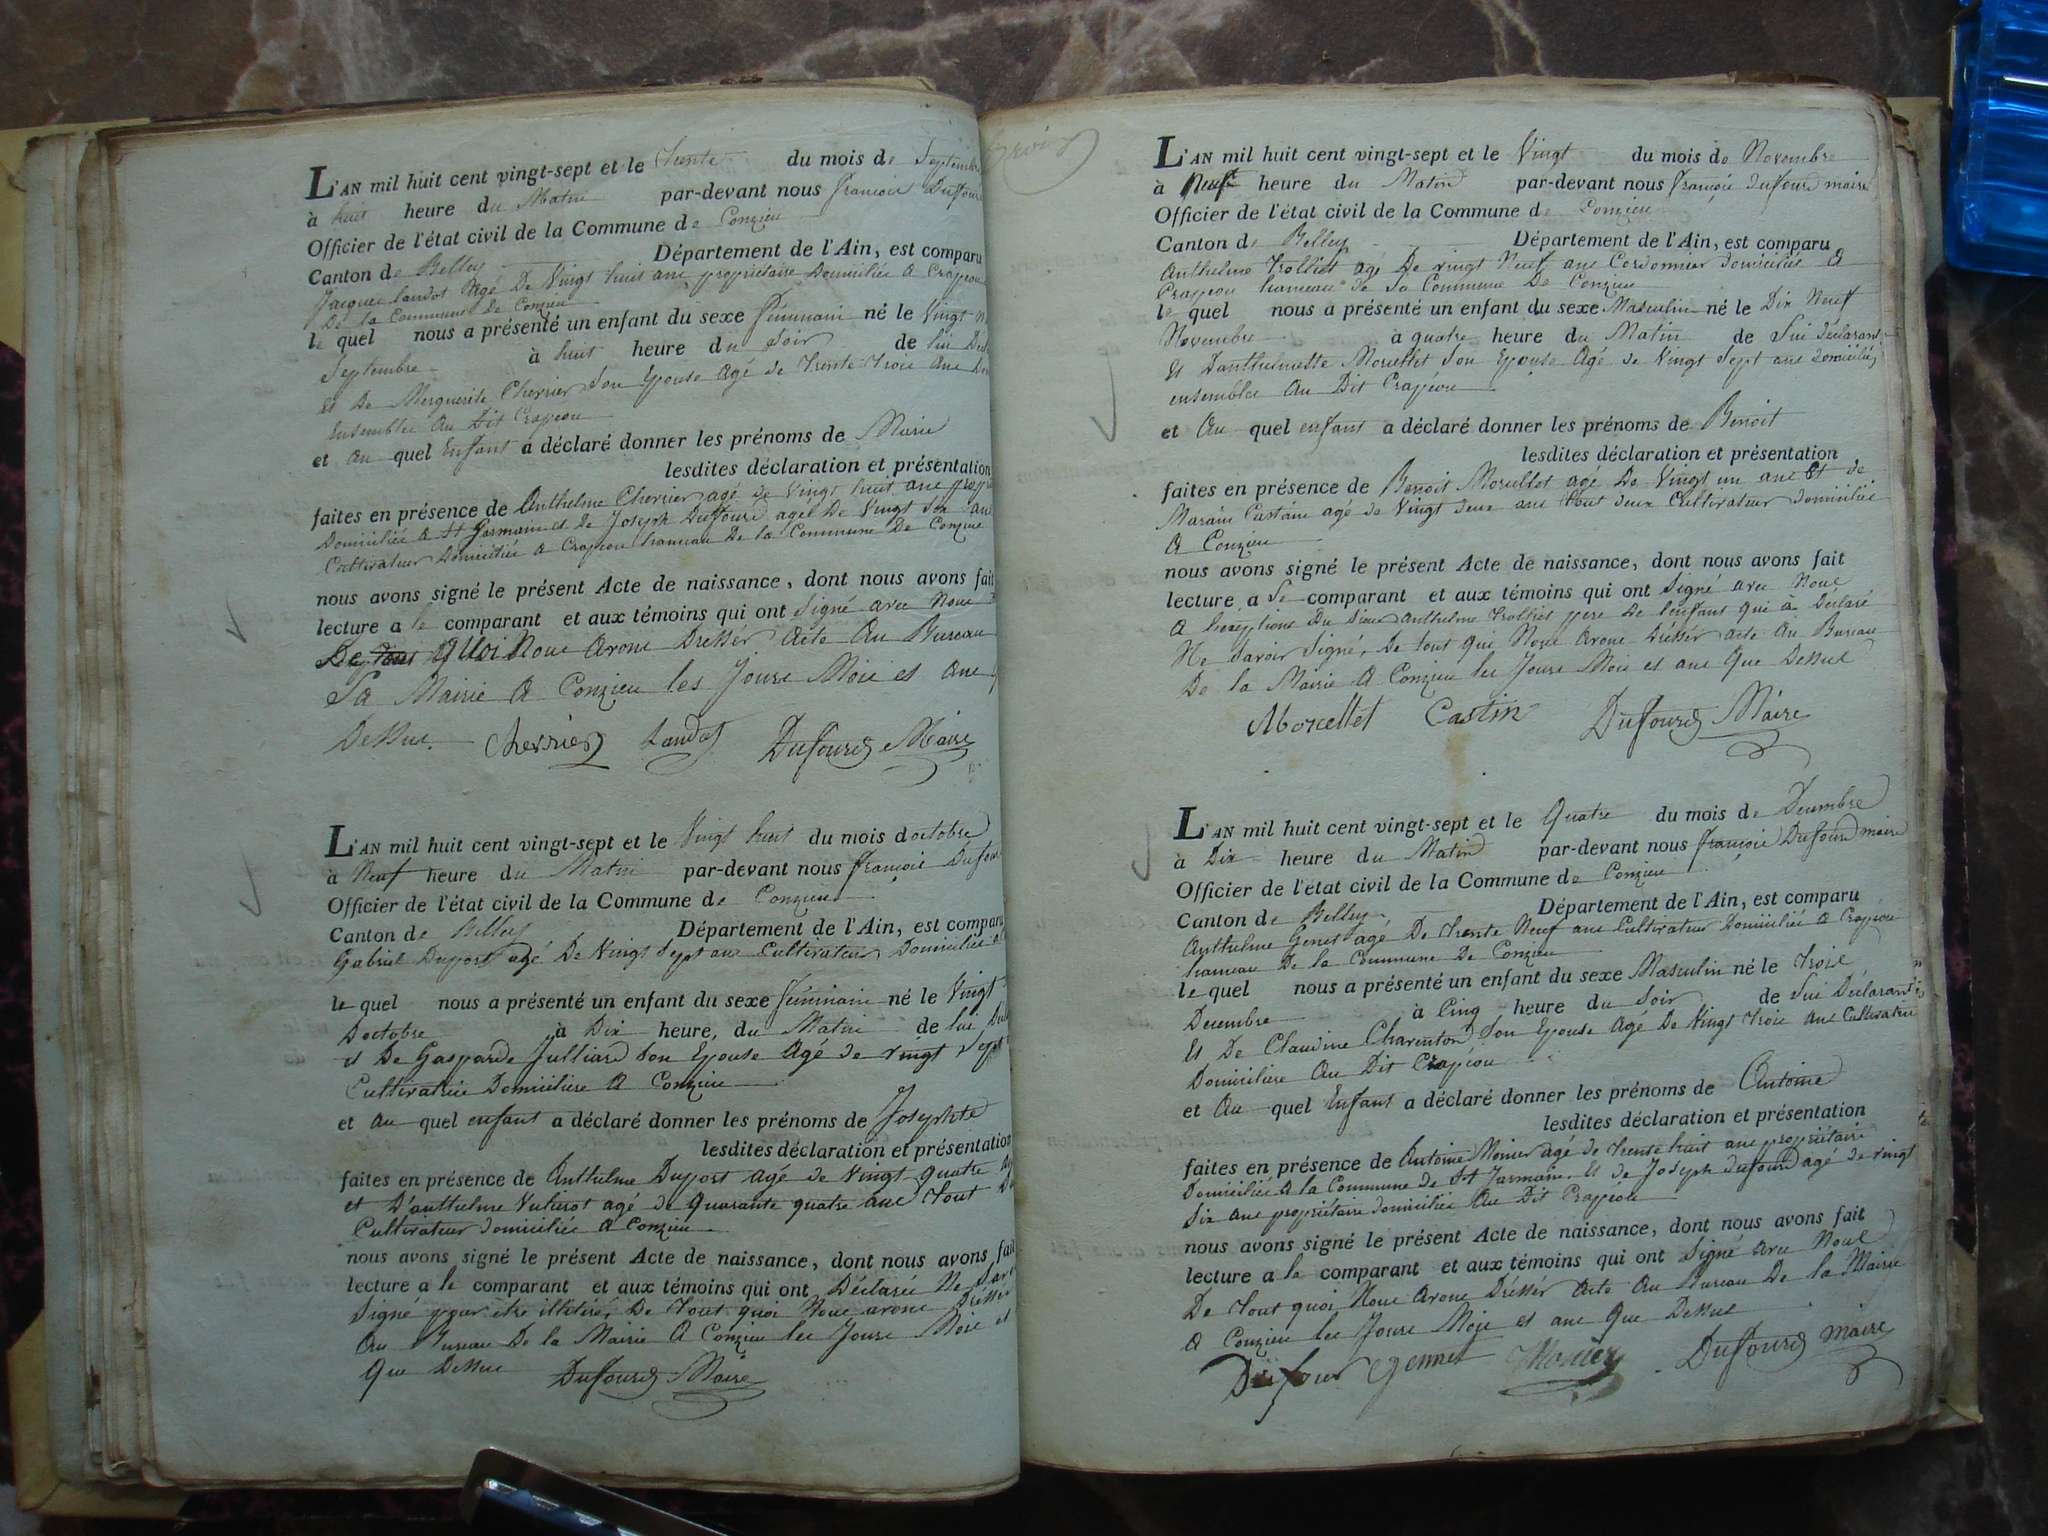 L'AN mil huit cent vingt-sept et le Trente du mois de Septembre
à huit heure du Matin par-devant nous francois Dufour
Officier de l'état civil de la Commune de Conzieu
Canton de Belley Département de l'Ain, est comparu
Jacques Landot Agé De Vingt huit ans propriétaire Domicilié A Crapeou
De la Commune De Conzieu
le quel nous a présenté un enfant du sexe féminin né le Vingt
Septembre à huit heure du Soir de lui
et De Marguerite Cherrier Son Epouse Agé de Trente Trois ans
Ensemble Au Dit Crapeou
et au quel Enfant a déclaré donner les prénoms de Marie
lesdites déclaration et présentation
faites en présence de Anthelme Cherrier agé de Vingt huit ans
Domicilié A St Jarmain et de Joseph Duffour agé De Vingt six ans
Cultivateur Domicilié A Crapeou hameau De la Commune De Conzieu
nous avons signé le présent Acte de naissance, dont nous avons fait
lecture a le comparant et aux témoins qui ont Signé avec Nous
De tout quoi Nous Avons Dressér Acte Au Bureau
La Mairie A Conzieu les Jours Mois et ans
Dessus. Cherrier Landot Dufour Maire
L'AN mil huit cent vingt-sept et le Vingt huit du mois doctobre
à Neuf heure du Matin par-devant nous francois Dufour
Officier de l'état civil de la Commune de Conzieu
Canton de Belley Département de l'Ain, est comparu
Gabriel Duport agé De Vingt Sept ans Cultivateur Domicilié
le quel nous a présenté un enfant du sexe féminin né le Vingt
Doctobre à Dix heure, du Matin de lui
et De Gasparde Julliard Son Epouse Agé de vingt Sept
Cultivatrice Domicilière A Conzieu
et au quel enfant a déclaré donner les prénoms de Josephte
lesdites déclaration et présentation
faites en présence de Anthelme Duport agé de Vingt quatre
et D'anthelme agé de Quarante quatre ans Tout
Cultivateur domicilié A Conzieu
nous avons signé le présent Acte de naissance, dont nous avons fait
lecture a le comparant et aux témoins qui ont Déclaré Ne
Signé pour être illétéré, De Tout quoi Nous avons Dressér
Au Bureau De la Mairie A Conzieu les Jours Mois et
Que Dessus Dufour Maire
L'AN mil huit cent vingt-sept et le Vingt du mois de Novembre
à Neuf heure du Matin par-devant nous françois dufour maire
Officier de l'état civil de la Commune de Conzieu
Canton de Belley Département de l'Ain, est comparu
Anthelme Trolliet agé De vingt Neuf ans Cordonnier domicilié A
Crapeou hameau de la Commune De Conzieu
le quel nous a présenté un enfant du sexe Masculin né le Dix Neuf
Novembre à quatre heure du Matin de lui déclarant
Et Danthelmette Morellet Son Epouse Agé de Vingt Sept ans domiciliés
ensembles Au Dit Crapéou
et Au quel enfant a déclaré donner les prénoms de Benoit
lesdites déclaration et présentation
faites en présence de Benoit Morellet agé De Vingt un ans Et de
Marain Castain agé de Vingt deux ans Tout deux Cultivateur domicilié
A Conzieu
nous avons signé le présent Acte de naissance, dont nous avons fait
lecture a le comparant et aux témoins qui ont Signé avec Nous
A Lexeptions Du Sieur Anthelme Trolliet pere De l'enfant qui à Déclaré
Ne Savoir Signé, De tout qui Nous Avons Dréssér acte Au Bureau
De la Mairie A Conzieu les Jours Mois et ans Que Dessus
Morellet Castin Dufour Maire
L'AN mil huit cent vingt-sept et le Quatre du mois de Décembre
à Dix heure du Matin par-devant nous françois Dufour maire
Officier de l'état civil de la Commune de Conzieu
Canton de Belley Département de l'Ain, est comparu
Anthelme Genet agé De Trente Neuf ans Cultivateur Domicilié A Crapéou
hameau De la Commune De Conzieu
le quel nous a présenté un enfant du sexe Masculin né le Trois
Decembre à Cinq heure du Soir de lui Déclarant
Et De Claudine Charenton Son Epouse Agé De Vingt Trois ans Cultivatrice
Domicilière Au Dit Crapéou
et Au quel Enfant a déclaré donner les prénoms de Antoine
lesdites déclaration et présentation
faites en présence de Antoine Monier agé de Trente huit ans propriétaire
Domicilié A la Commune de St Jarmain. Et de Joseph dufour agé de vingt
Six ans propriétaire domicilié Au Dit Crapéou
nous avons signé le présent Acte de naissance, dont nous avons fait
lecture a le comparant et aux témoins qui ont Signé avec Nous
De Tout quoi Nous Avons Dréssér Acte Au Bureau De la Mairie
A Conzieu les Jours Mois et ans Que Dessus
Dufour Gennet Monier Dufour maire